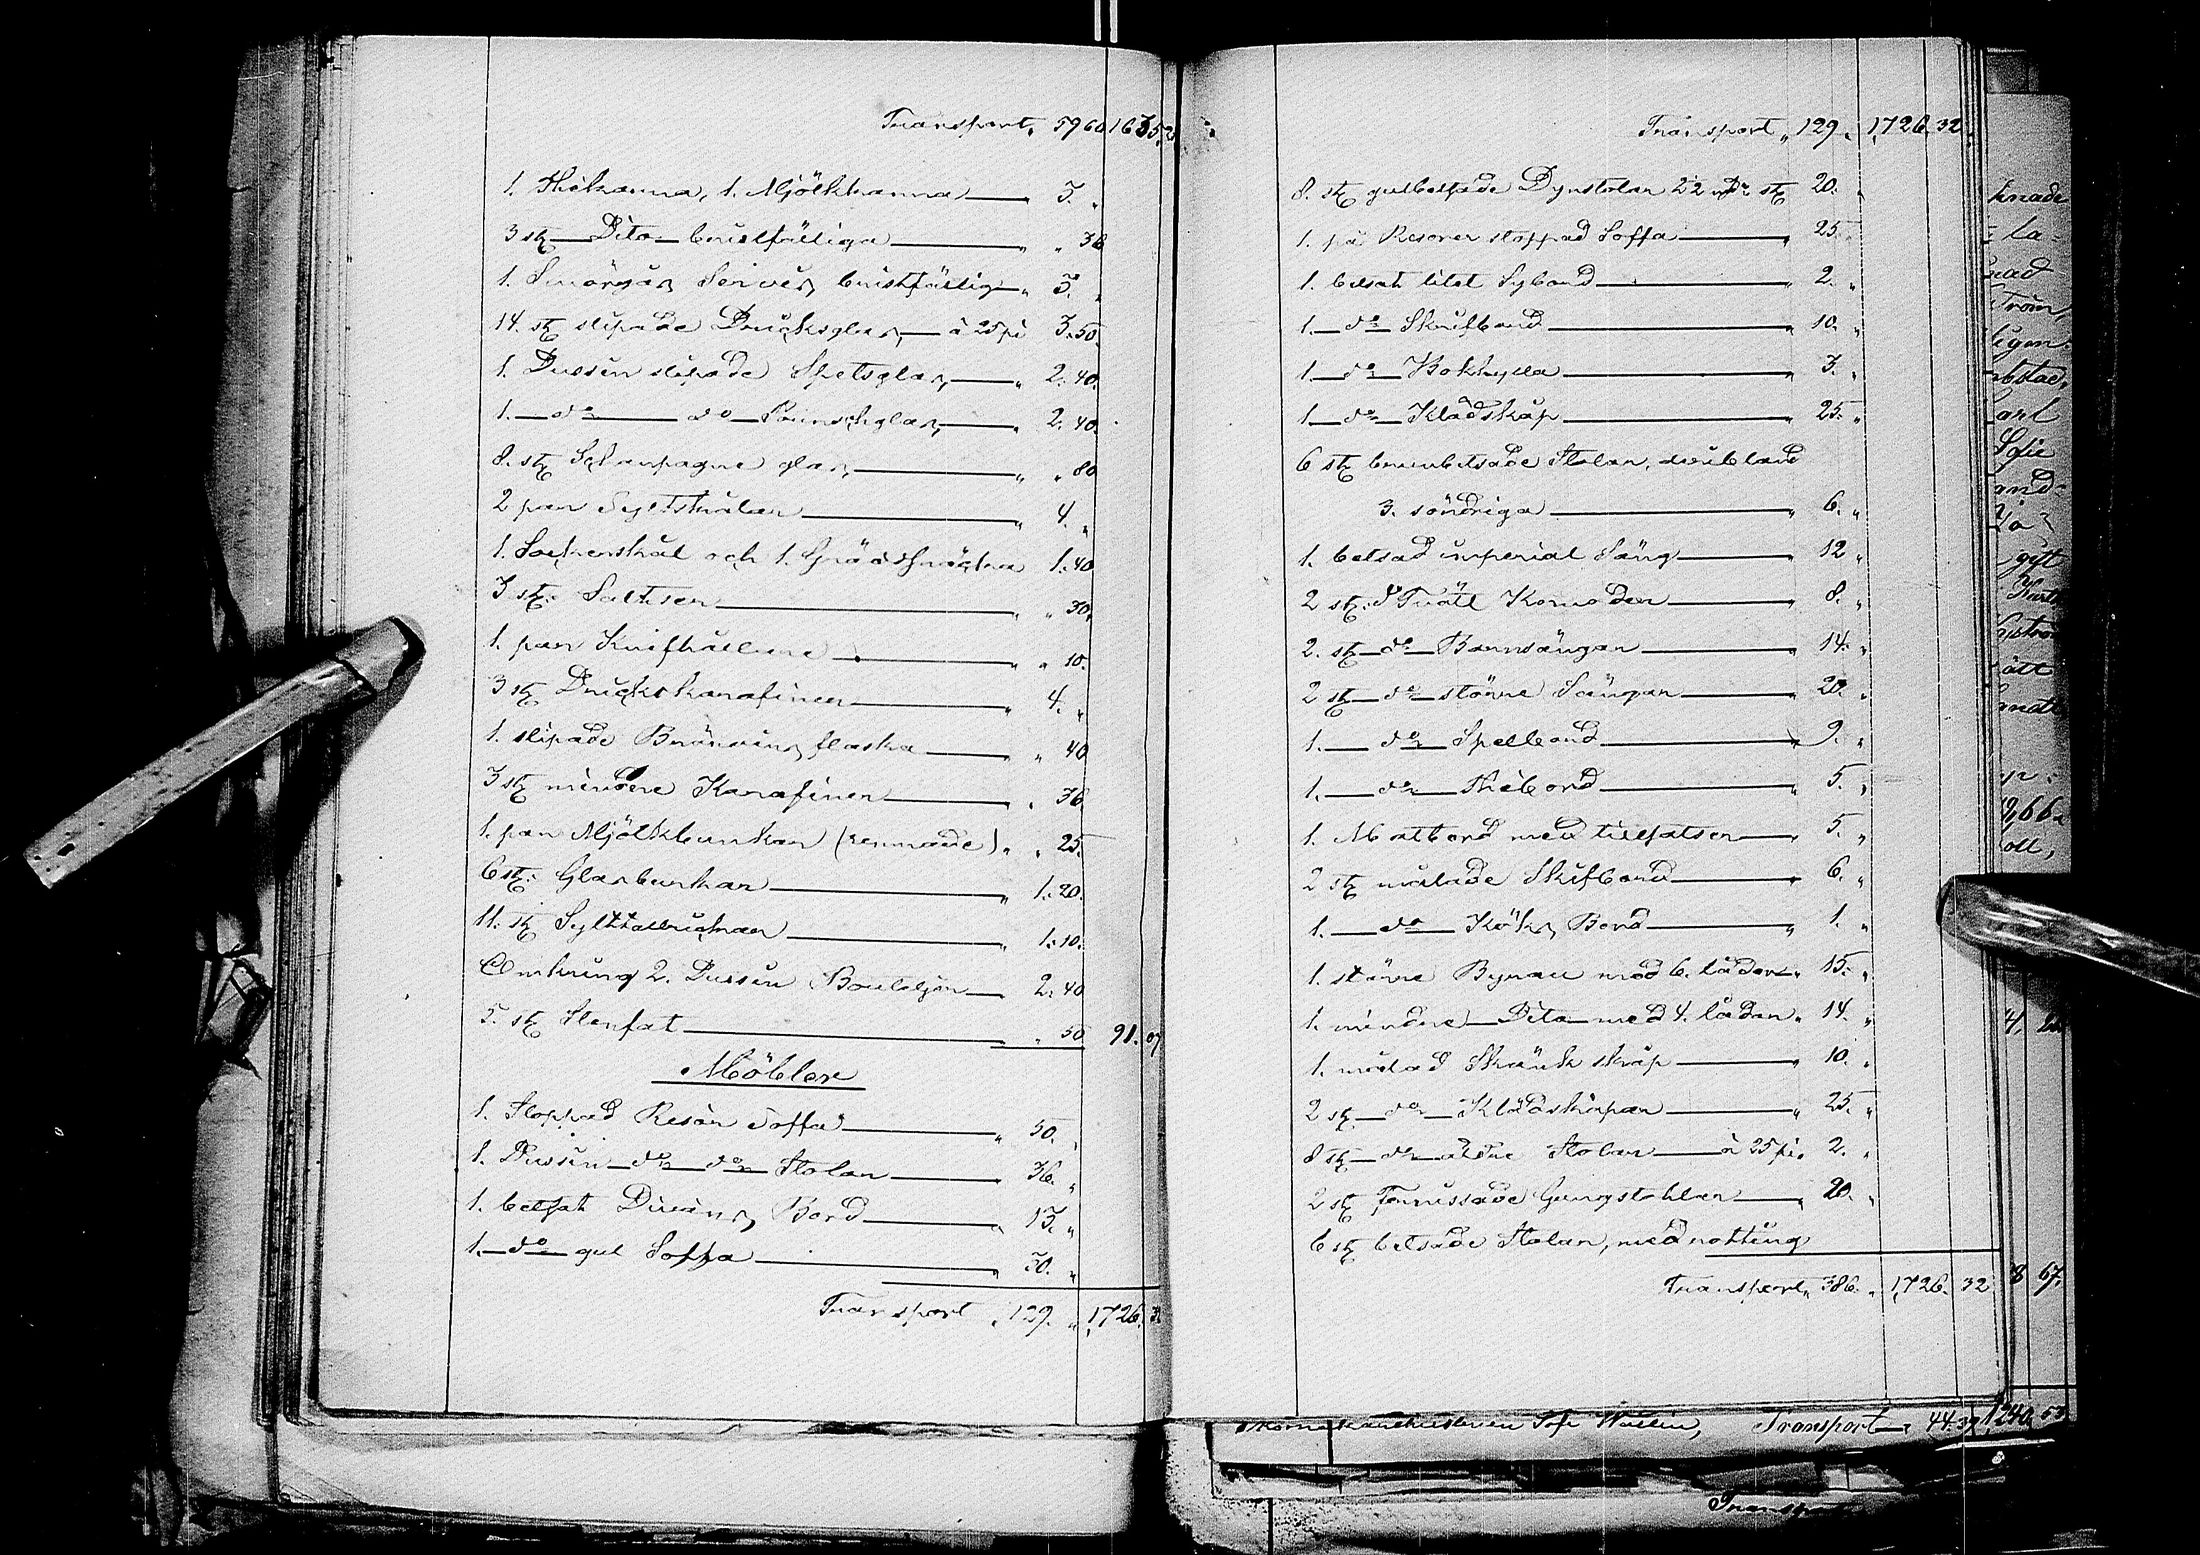 Transport „ 59 60 1635 2
1. Thékanna, 1. Mjölkkanna „ 3. „
3 st Dito bristfälliga „ „ 36
1. Smörgås Servis, bristfällig „ 3. „
14. st slipade Dricksglas à 25 pi 3. 50.
1. Dussin slipade Spetsglas, „ 2. 40.
1. do do Punschglas, „ 2. 40.
8. st Schampagne glas, „ „ 80
2 par Syltskålar „ 4. „
1. Sockerskål och 1. Gräddsnäcka 1. 40
3 st. Saltser „ „ 30.
1. par Knifhållare „ „ 10.
3 st Dricks karafiner „ 4. „
1. slipade Bränvins flaska „ „ 40
3 st mindre Karafiner „ „ 36
1. par Mjölkbunkar (remnade) „ „ 25.
6 st. Glasbunkar „ 1. 20.
11. st Sylttallrickar „ 1. 10.
Omkring 2. Dussin Bouteljer 2. 40
5. st Stenfat „ 50 91. 07
Möbler
1. Stoppad Resår Soffa „ 50. „
1. Dussin do do Stolar „ 36. „
1. betsat Divans Bord „ 13. „
1. do gul Soffa „ 30. „
Transport „ 129. „ 1,726. 3
Transport „ 129. „ 1,726 32
8. st gulbetsade Dynstolar st 20. „
1. på Resorer stoppad Soffa „ 25. „
1. betsat litet Sybord „ 2. „
1. do Skrifbord „ 10. „
1. do Bokhylla „ 3. „
1 do Klädskåp „ 25. „
6 st brunbetsade Stolar, deribland
3. söndriga „ 6. „
1. betsad imperial Säng „ 12 „
2 st. do Tvätt Komoder „ 8. „
2. st do Barnsängar „ 14. „
2 st do större Sängar „ 20. „
1. do Spelbord „ 9. „
1. do Thébord „ 5. „
1. Matbord med tillsatser „ 5. „
2 st målade Skifbord „ 6. „
1. do Köks Bord „ 1. „
1. större Byrau med 6. lådor „ 15. „
1. mindre Dito med 4. lådor „ 14. „
1. målad Skänk skåp „ 10. „
2 st. do Klädskåpar „ 25. „
8 st do äldre Stolar à 25 pi. 2. „
2 st Fernissade Gungstohlar „ 20. „
6 st betsade Stolar, med rotting
Transport „ 386. „ 1,726. 32
knade
la-
Trön,
ligen
bstad,
Carl
Sofie
and-
gift
ått
66.
8 67.
Sofi Wallin, Transport 44. 32 1240. 53
Transp